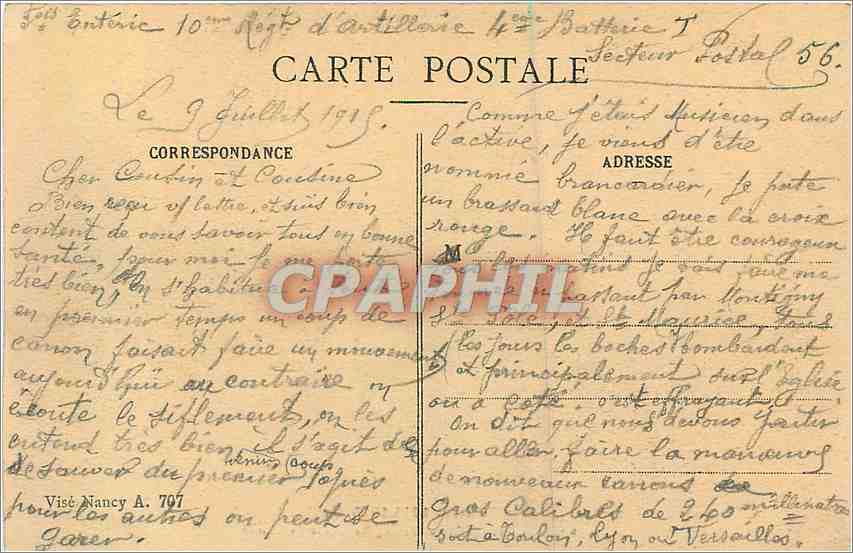 Entéric 10eme Régt d'artillerie 4eme Batterie T
Secteur Postal 56.
CARTE POSTALE
Le 9 Juillet 1915.
CORRESPONDANCE
Cher Cousin et Cousine
Bien reçu v/ lettre, et suis bien
content de vous savoir tous en bonne
santé, pour moi je me porte
très bien, on s'habitue
en premier temps un coup de
canon faisait faire un mouvement
aujourd'hui au contraire on
écoute le siflement, on les
entend très bien, il s'agit de
se sauver du premier coup après
venu
pour les autres on peut se
garer.
Visé Nancy A. 707
Comme j'étais Musicien dans
l'active, je viens d'être
ADRESSE
nommé brancardier, je porte
un brassard blanc avec la croix
rouge. Il faut être courageux
M
matins je vais faire ma
passant par Montigny
et St Maurice, tous
les jours les boches bombardent
et principalement sur l'Eglise
ou à coté, c'est effrayant,
On dit que nous devons partir
pour aller faire la manœuvre
de nouveaux canons de
Gros Calibres de 240 millimètres
soit à Toulon, Lyon ou Versailles.
CPAPHIL